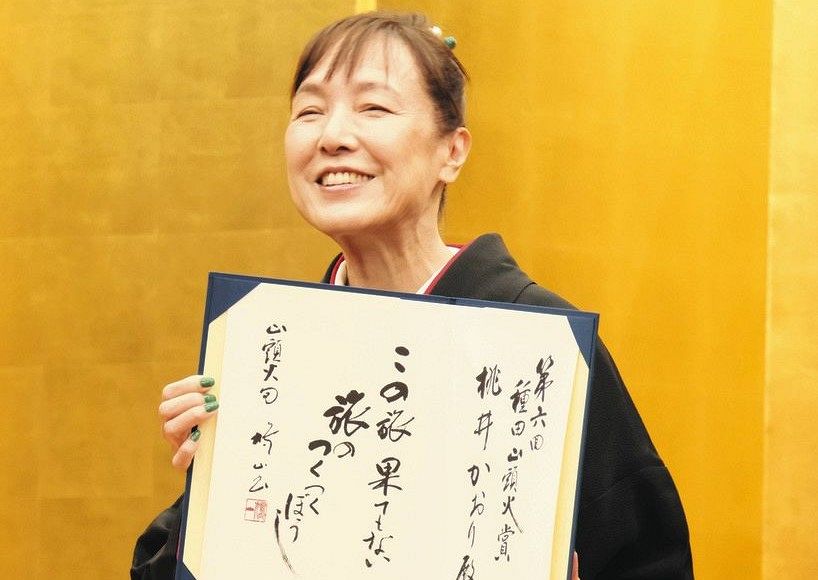 第六回
種田山頭火賞
桃井かおり殿
この旅果てもない
旅の
つくつくぼうし
山頭火句